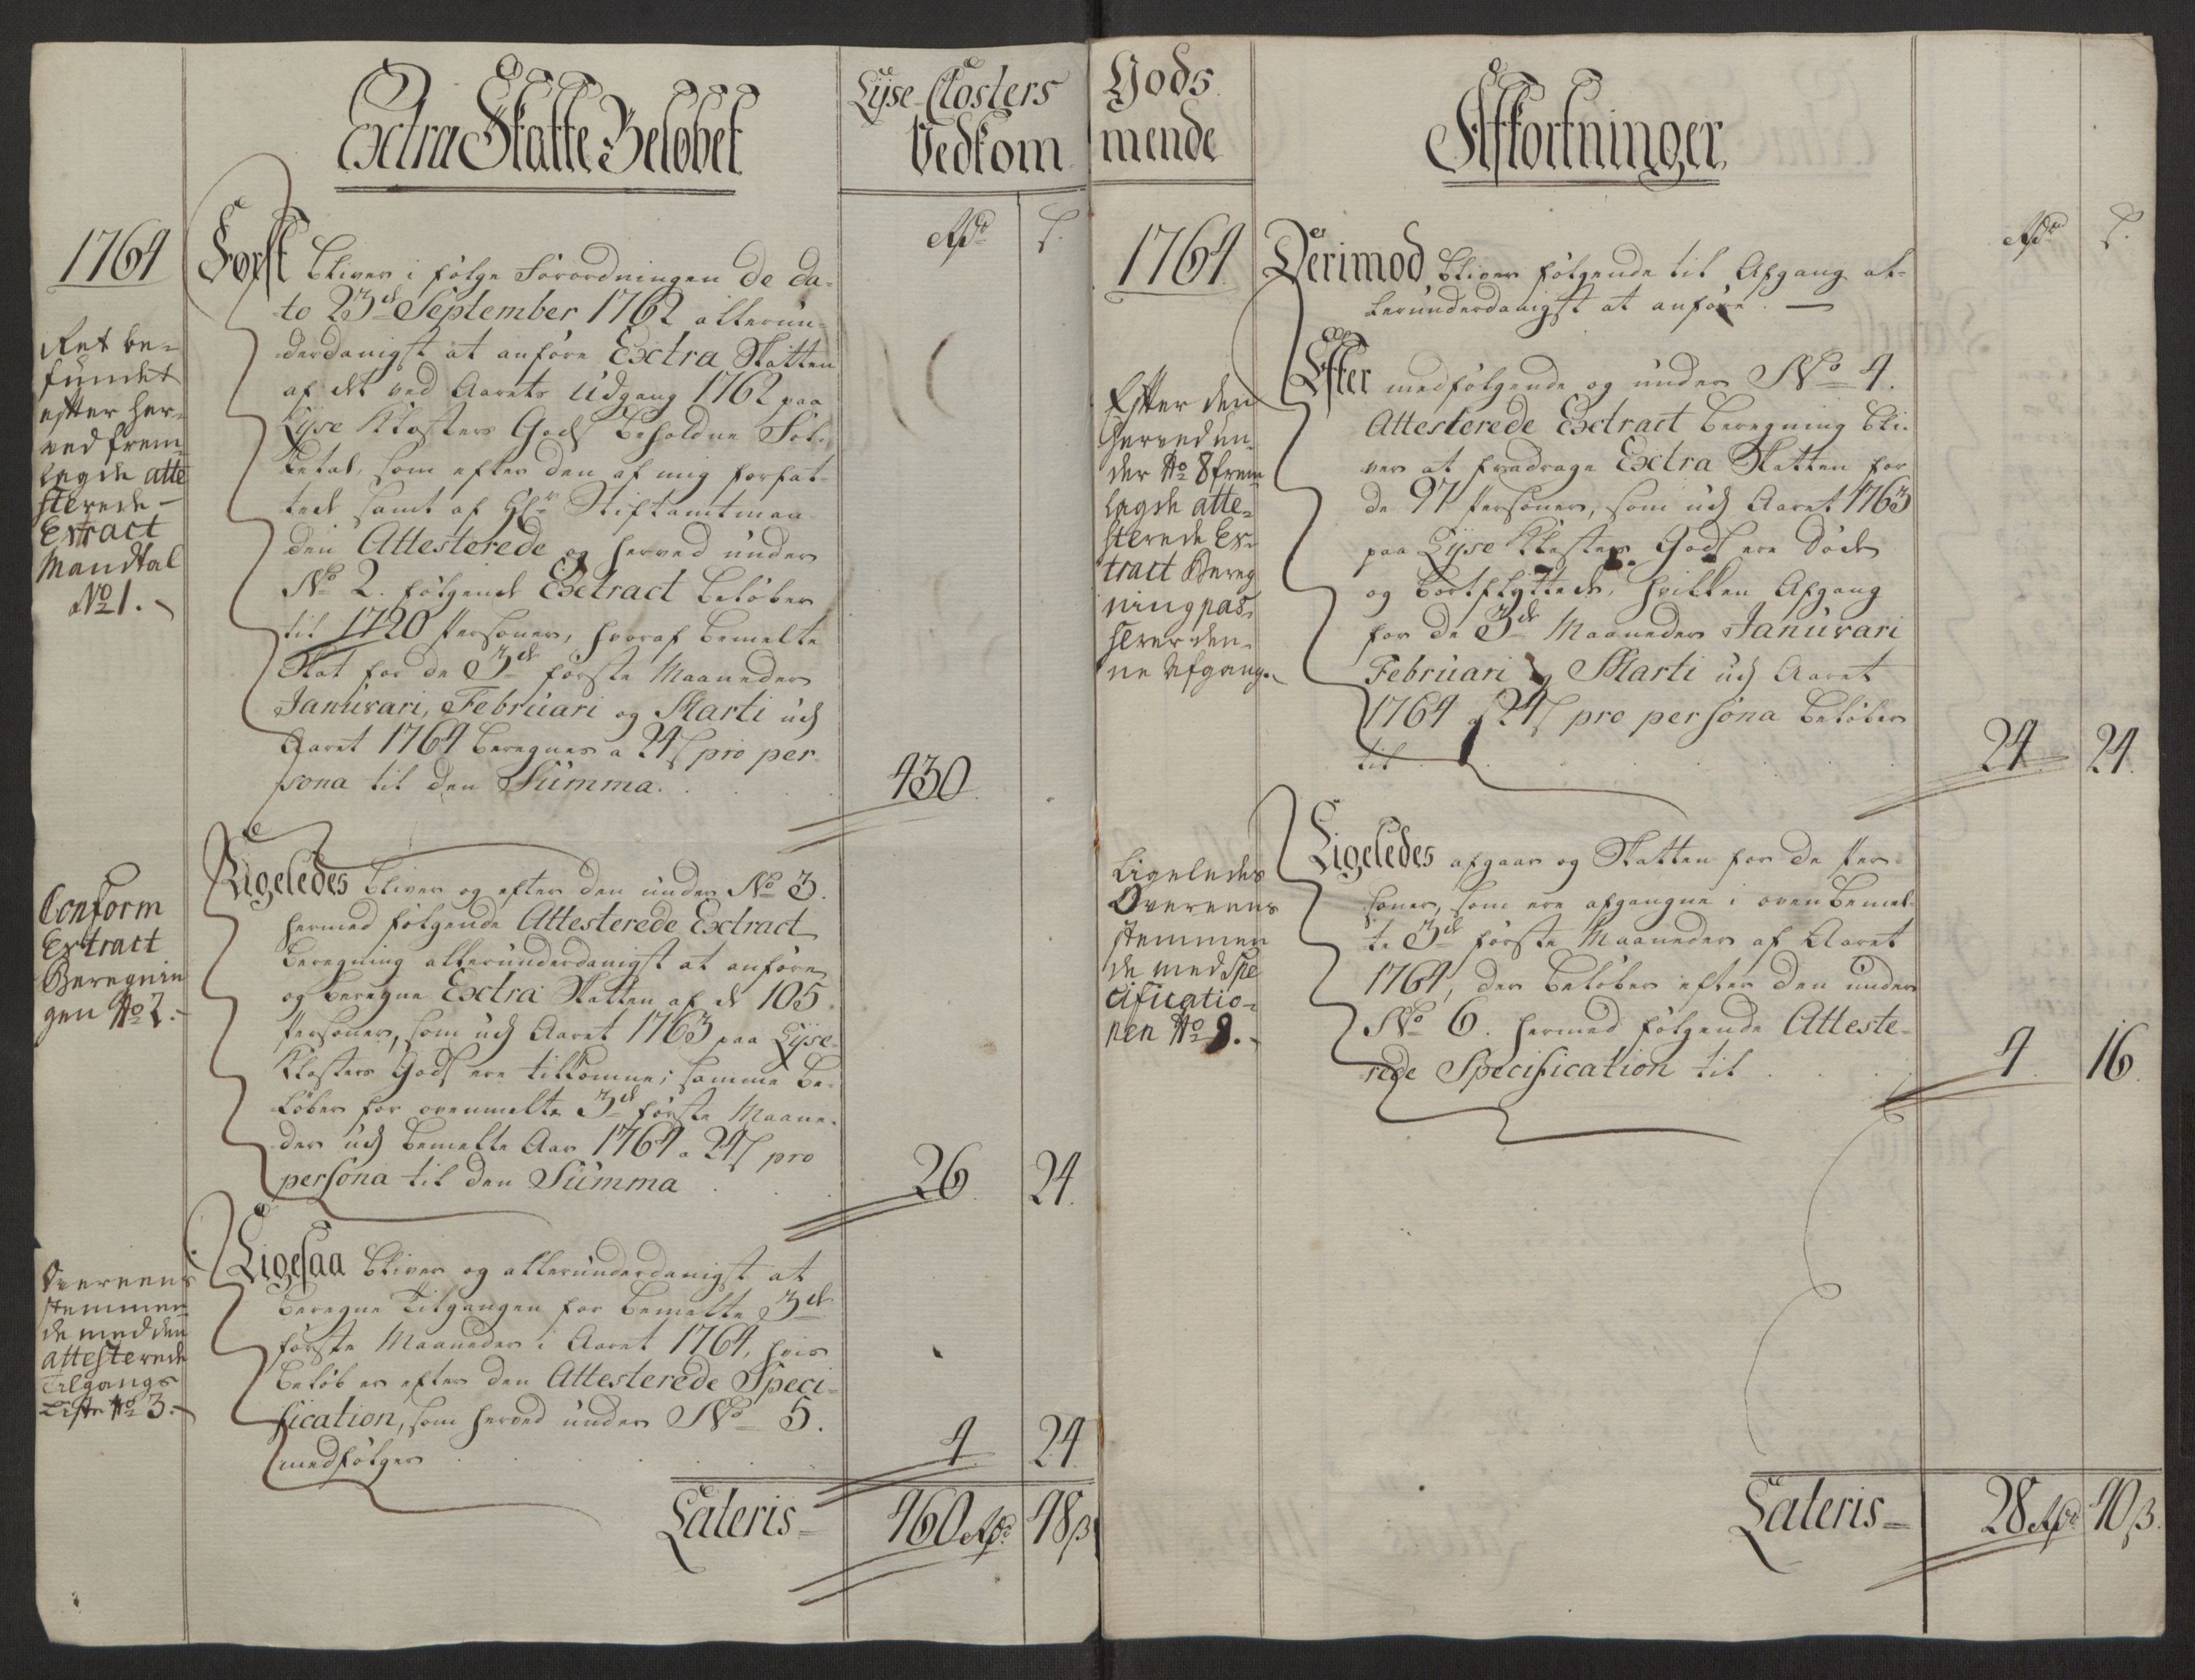 Extra Skatte Beløbet
Lyse-Closters
Vedkom
Rdr
ß.
1764
Ret be-
fundet
efter her-
ved frem-
lagde atte
sterede-
Extract
Mandtal
No 1.
Først bliver i følge Forordningen de da-
to 23de September 1762 allerun-
derdanigst at anføre Extra Skatten
af det ved Aarets Udgang 1762 paa
Lyse Klosters Gods beholdne Fol-
ketal, som efter den af mig forfat-
tede samt af Hr Stiftamtmaa-
den Attesterede og herved under
No 2. følgende Extract beløber
til 1720 Personer, hvoraf bemelte
Skat for de 3de første Maaneder
Januvari, Februari og Marti udj
Aaret 1764 beregnes a 24ß pro per-
sona til den Summa.
430.
Conform
Extract
Beregnin
gen No 2.
Ligeledes bliver og efter den under No 3.
hermed følgende Attesterede Extract
Beregning allerunderdanigst at anføre
og beregne Extra Skatten af de 105
Personer, som udj Aaret 1763 paa Lyse-
Klosters Gods ere tilkomne; samme be-
løber for ovenmelte 3de første Maane-
der udj bemelte Aar 1764 a 24ß pro
persona til den Summa
26. 24.
Overeens
stemmen
de med den
attesterede
Tilgangs
Liste No 3.
Ligesaa bliver og allerunderdanigst at
beregne Tilgangen for bemelte 3de
første Maaneder i Aaret 1764, hvis
Beløb er efter den Attesterede Speci-
fication, som herved under No 5.
medfølger
4 24.
Lateris = 460 Rdr 48 ß
Gods
mende
Afkortninger
Rdr
ß.
1764.
Derimod bliver følgende til Afgang al-
lerunderdanigst at anføre. —
Efter den
herved un-
der No 8 frem
lagde atte-
sterede Ex-
tract Bereg
ning pas-
serer den-
ne Afgang.
Efter medfølgende og under No 4.
Attesterede Extract Beregning bli-
ver at fradrage Extra Skatten for
de 97 Personer, som udj Aaret 1763
paa Lyse Klosters Gods ere døde
og bortflyttede, hvilken Afgang
for de 3de Maaneder Januvari
Februari og Marti udj Aaret
1764 a 24ß pro persona beløber
til
24. 24.
Ligeledes
Overeens
stemmen
de med Spe
cificatio-
nen No 9.
Ligeledes afgaar og Skatten for de Per-
soner, som ere afgangne i ovenbemel-
te 3de første Maaneder af Aaret
1764, der beløber efter den under
No 6. hermed følgende Atteste-
rede Specification til
4. 16.
Lateris = 28 Rdr 40 ß.